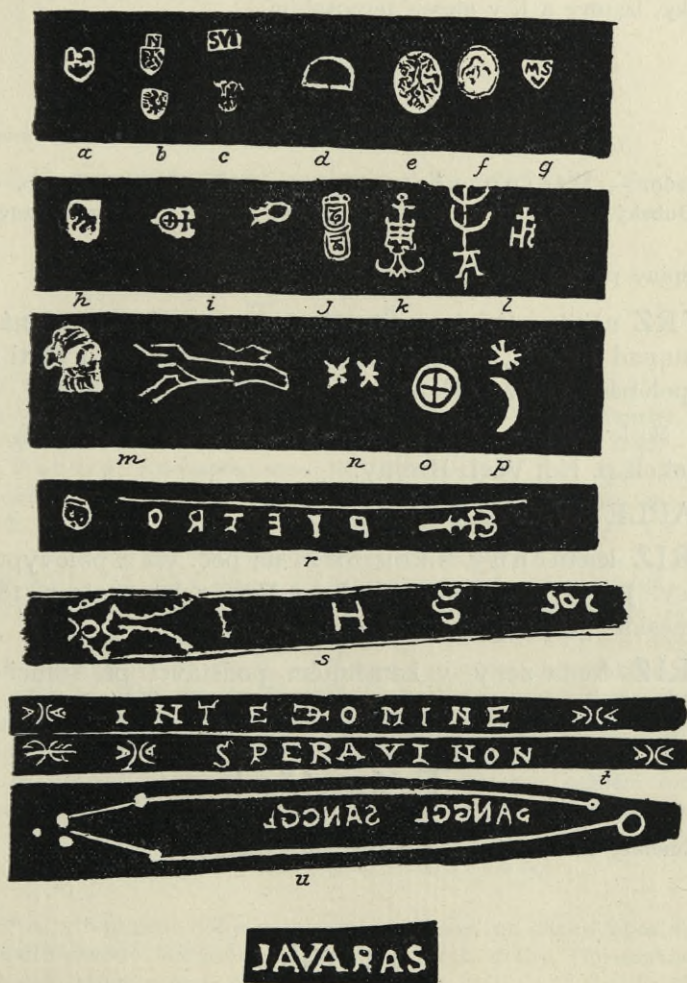 N
SVI
MS
a b c d e f g
h i j k l
m n o p
PIETRO
r
I H S SOC
s
INTE DOMINE
SPERAVI NON
t
SANCCL SANCCL
u
JAVARAS